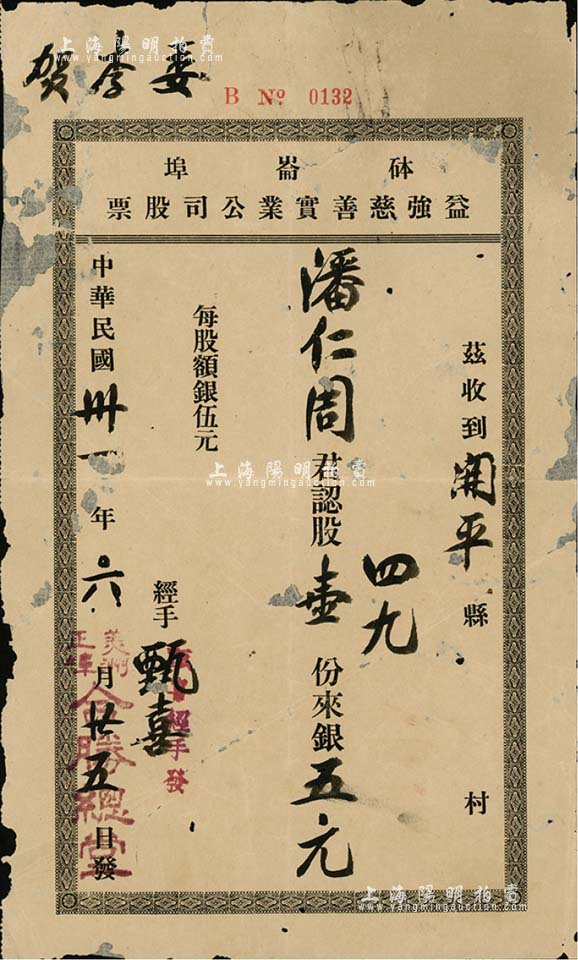 上海陽明拍賣
www.yangmingauction.com
B Nº 0132
砵崙埠
益強慈善實業公司股票
茲收到開平縣四九村
潘仁周君認股壹份來銀五元
每股額銀伍元
經手甄喜
經手發
中華民國卅一年六月廿五日發
美洲
合勝總堂
上海陽明拍賣
www.yangmingauction.com
上海陽明拍賣
www.yangmingauction.com